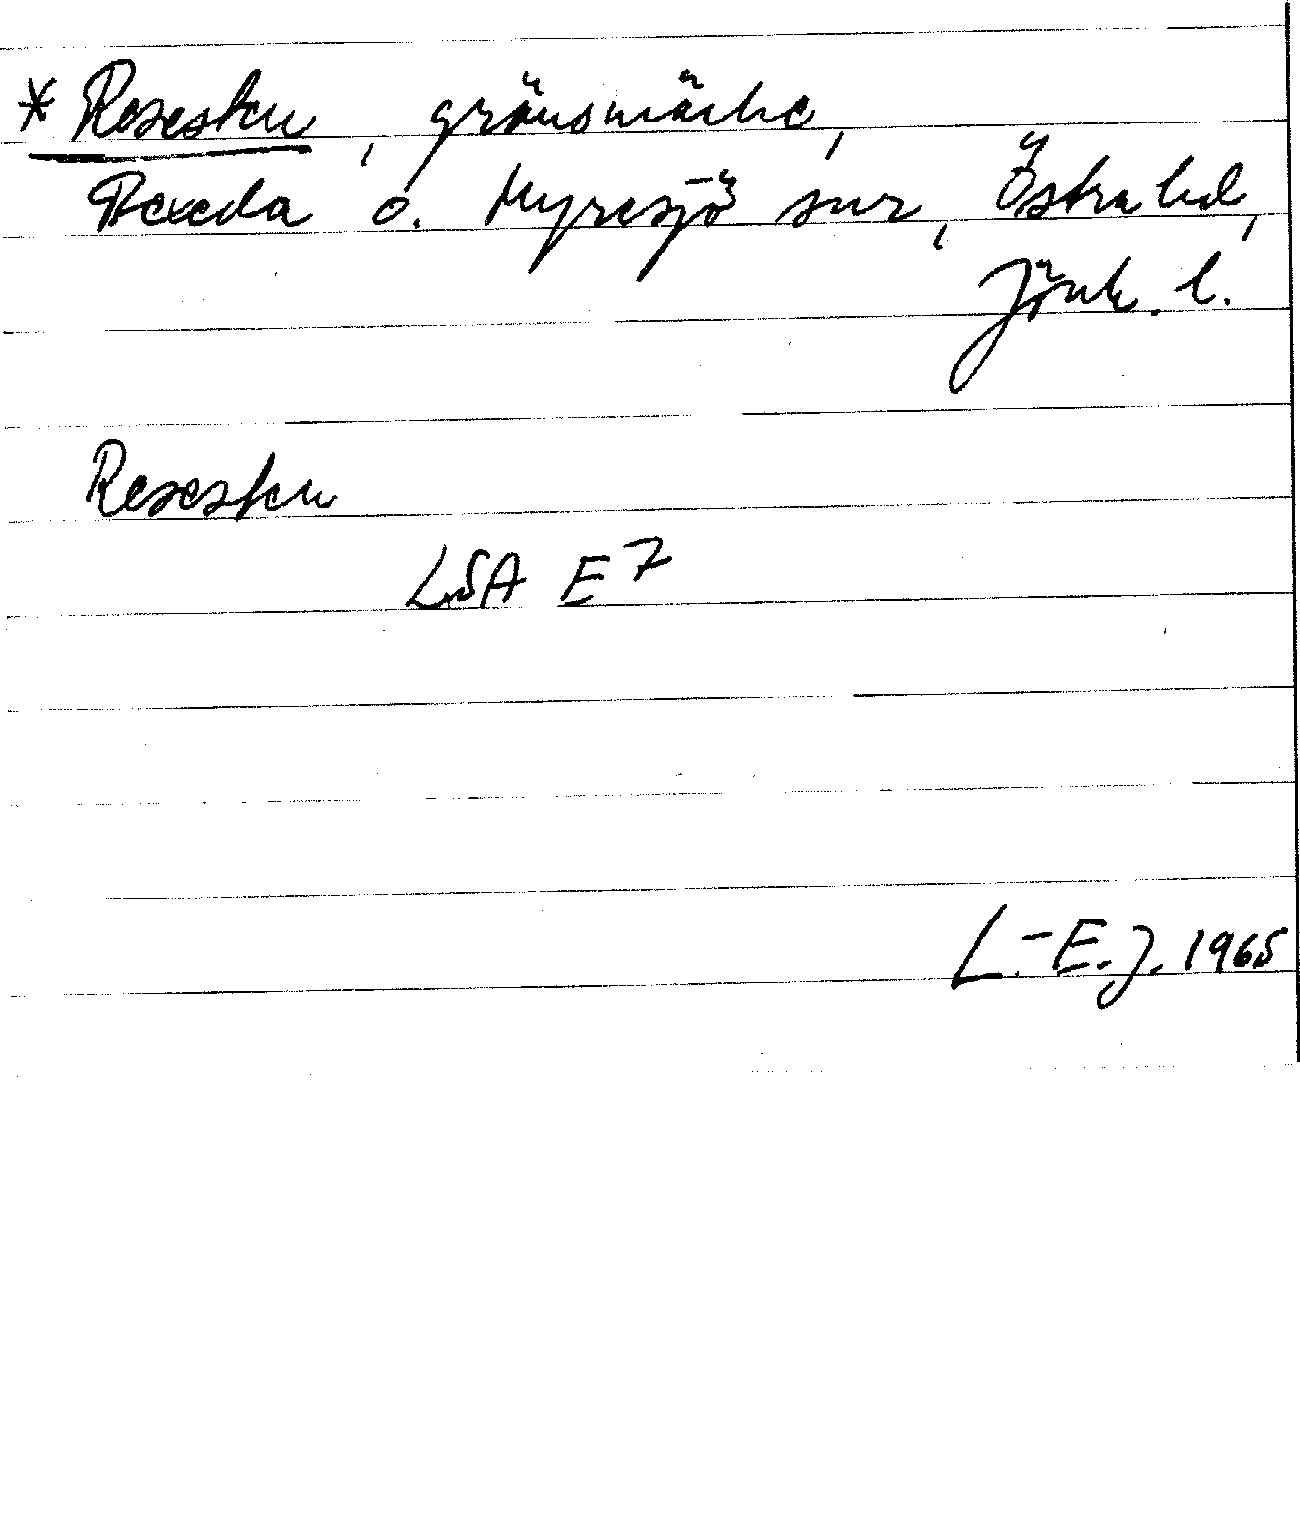 * Resesten, gränsmärke,
Bexeda o. Myresjö snr, Östra hd,
Jönk. l.
Resesten
LSA E7
L.-E. J. 1965